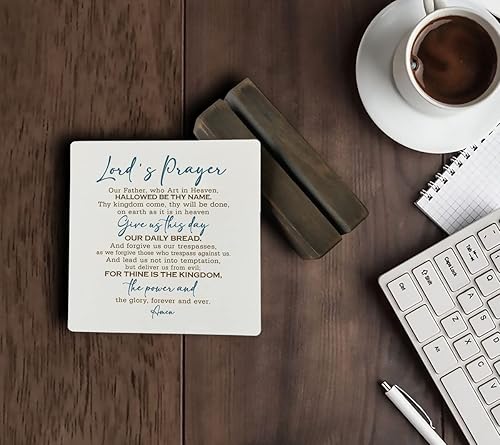 Lord's Prayer
Our Father, who Art in Heaven,
HALLOWED BE THY NAME.
Thy kingdom come, thy will be done,
on earth as it is in heaven
Give us this day
OUR DAILY BREAD.
And forgive us our trespasses,
as we forgive those who trespass against us.
And lead us not into temptation,
but deliver us from evil;
FOR THINE IS THE KINGDOM,
the power and
the glory, forever and ever.
Amen
Ctrl
Shift
Caps Lock
Tab
Alt
Z
A
Q
X
S